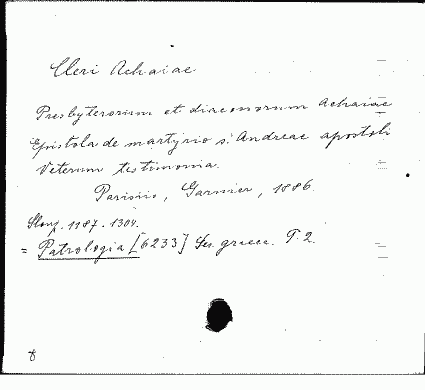 Cleri Achaiae
Presbyterorum et diaconorum Achaiae
Epistola de martyrio s. Andreae apostoli
Veterum testimonia.
Parisiis, Garnier, 1886.
1187-1304.
= Patrologia [6233] Ser. graeca. T. 2.